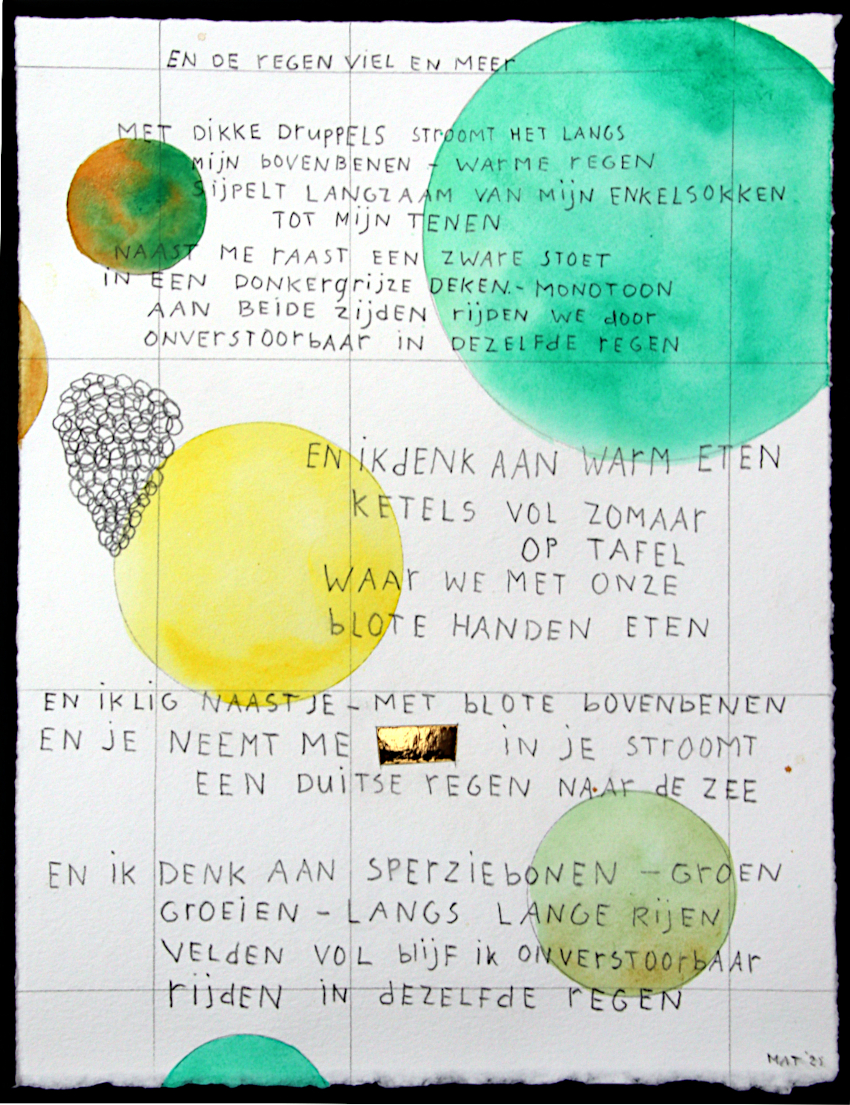 EN DE rEGEN ViEL EN MEEr
MET DiKKE DruppELS STrOOMT HET LANGS
MijN bOVENBENEN - WArME rEGEN
SijPELT LANGZAAM VAN Mijn ENKELSOKKEN
TOT MijN TENEN
NAAST ME rAAST EEN ZWArE STOET
iN EEN DONKErgrijZE DEKEN - MONOTOON
AAN BEiDE ZijdEN rijDEN WE door
ONVErSTOOrbAAr iN DEZELFdE rEGEN
EN iK dENK AAN WArM ETEN
KETELS VOL ZOMAAr
OP TAFEL
WAAr WE MET ONZE
bLOTE HANDEN ETEN
EN iK LiG NAAST JE - MET bLOTE bOVENbENEN
EN jE NEEMT ME iN jE STrOOMT
EEN DuiTSE rEGEN NAAr dE ZEE
EN iK DENK AAN SPErZiEbONEN - GrOEN
GrOEiEN - LANGS LANGE RijEN
VELdEN VOL blijF iK ONVErSTOOrbAAr
rijdEN iN dEZELFdE rEGEN
MAT